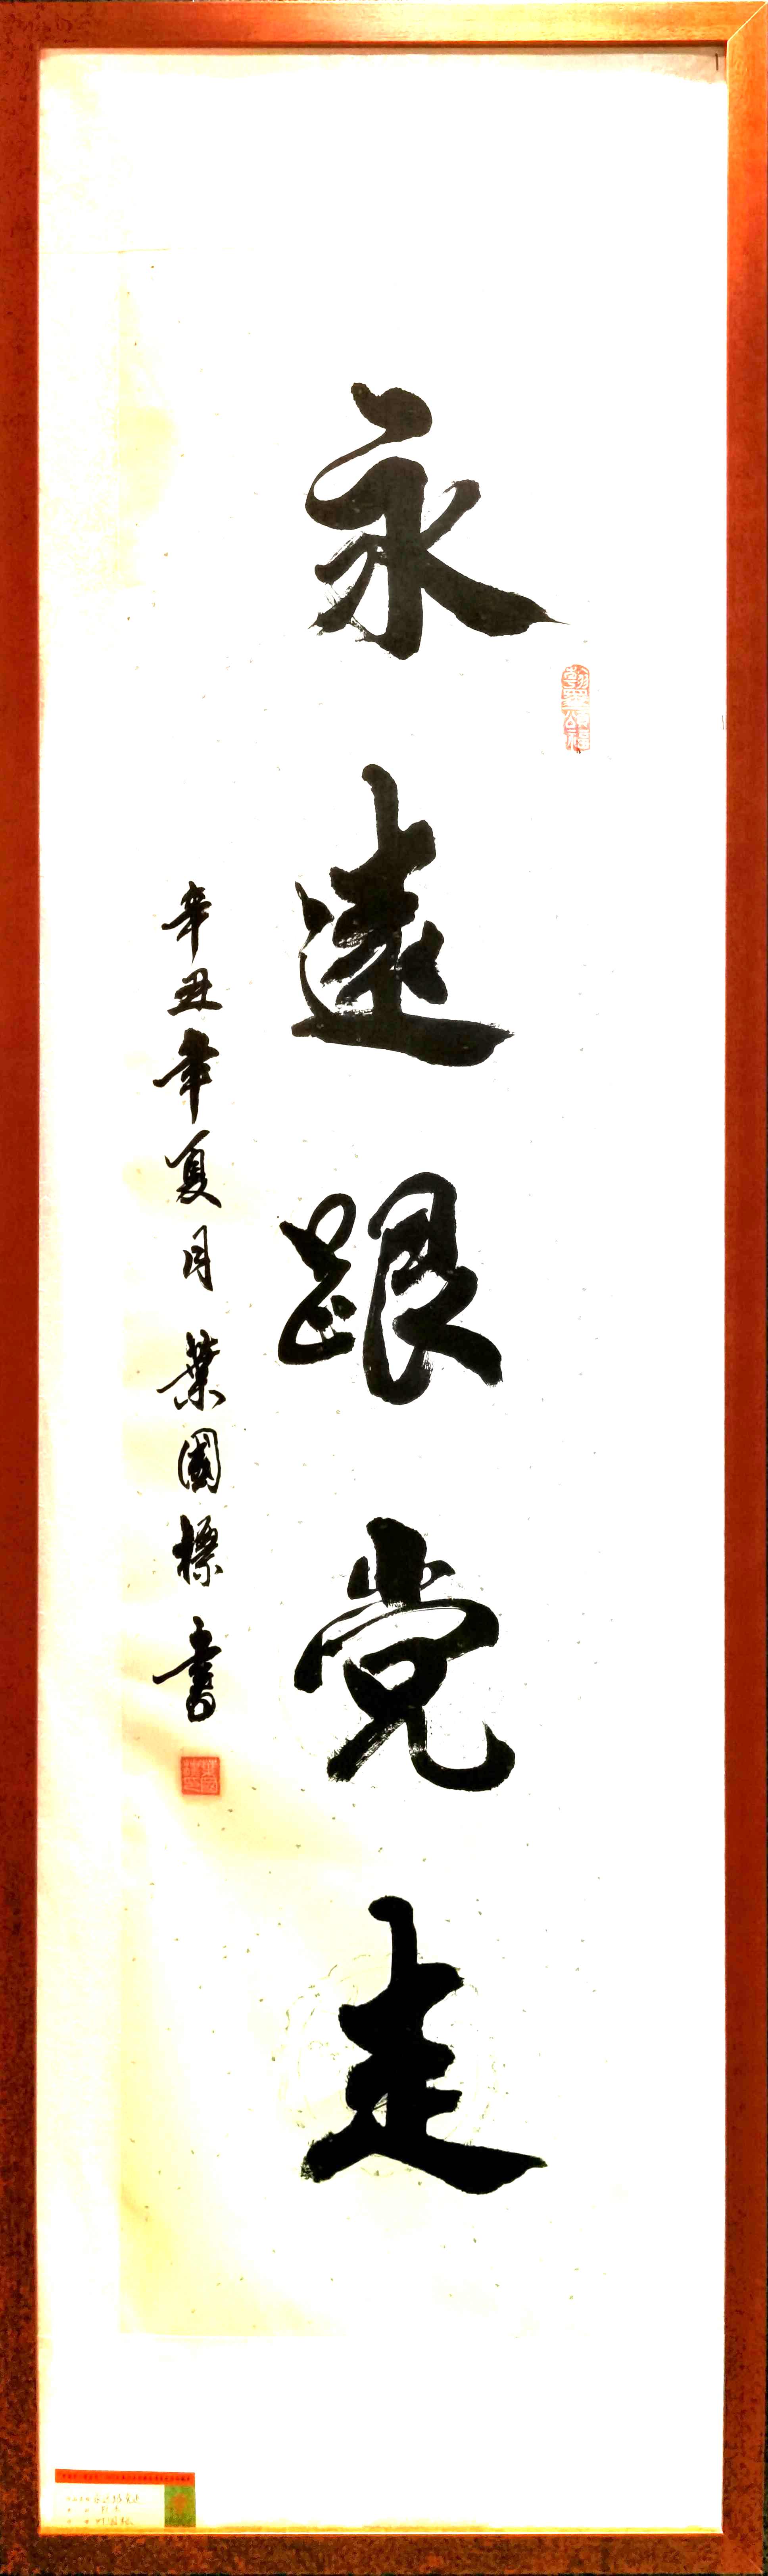 永遠跟党走
辛丑年夏月葉國標書